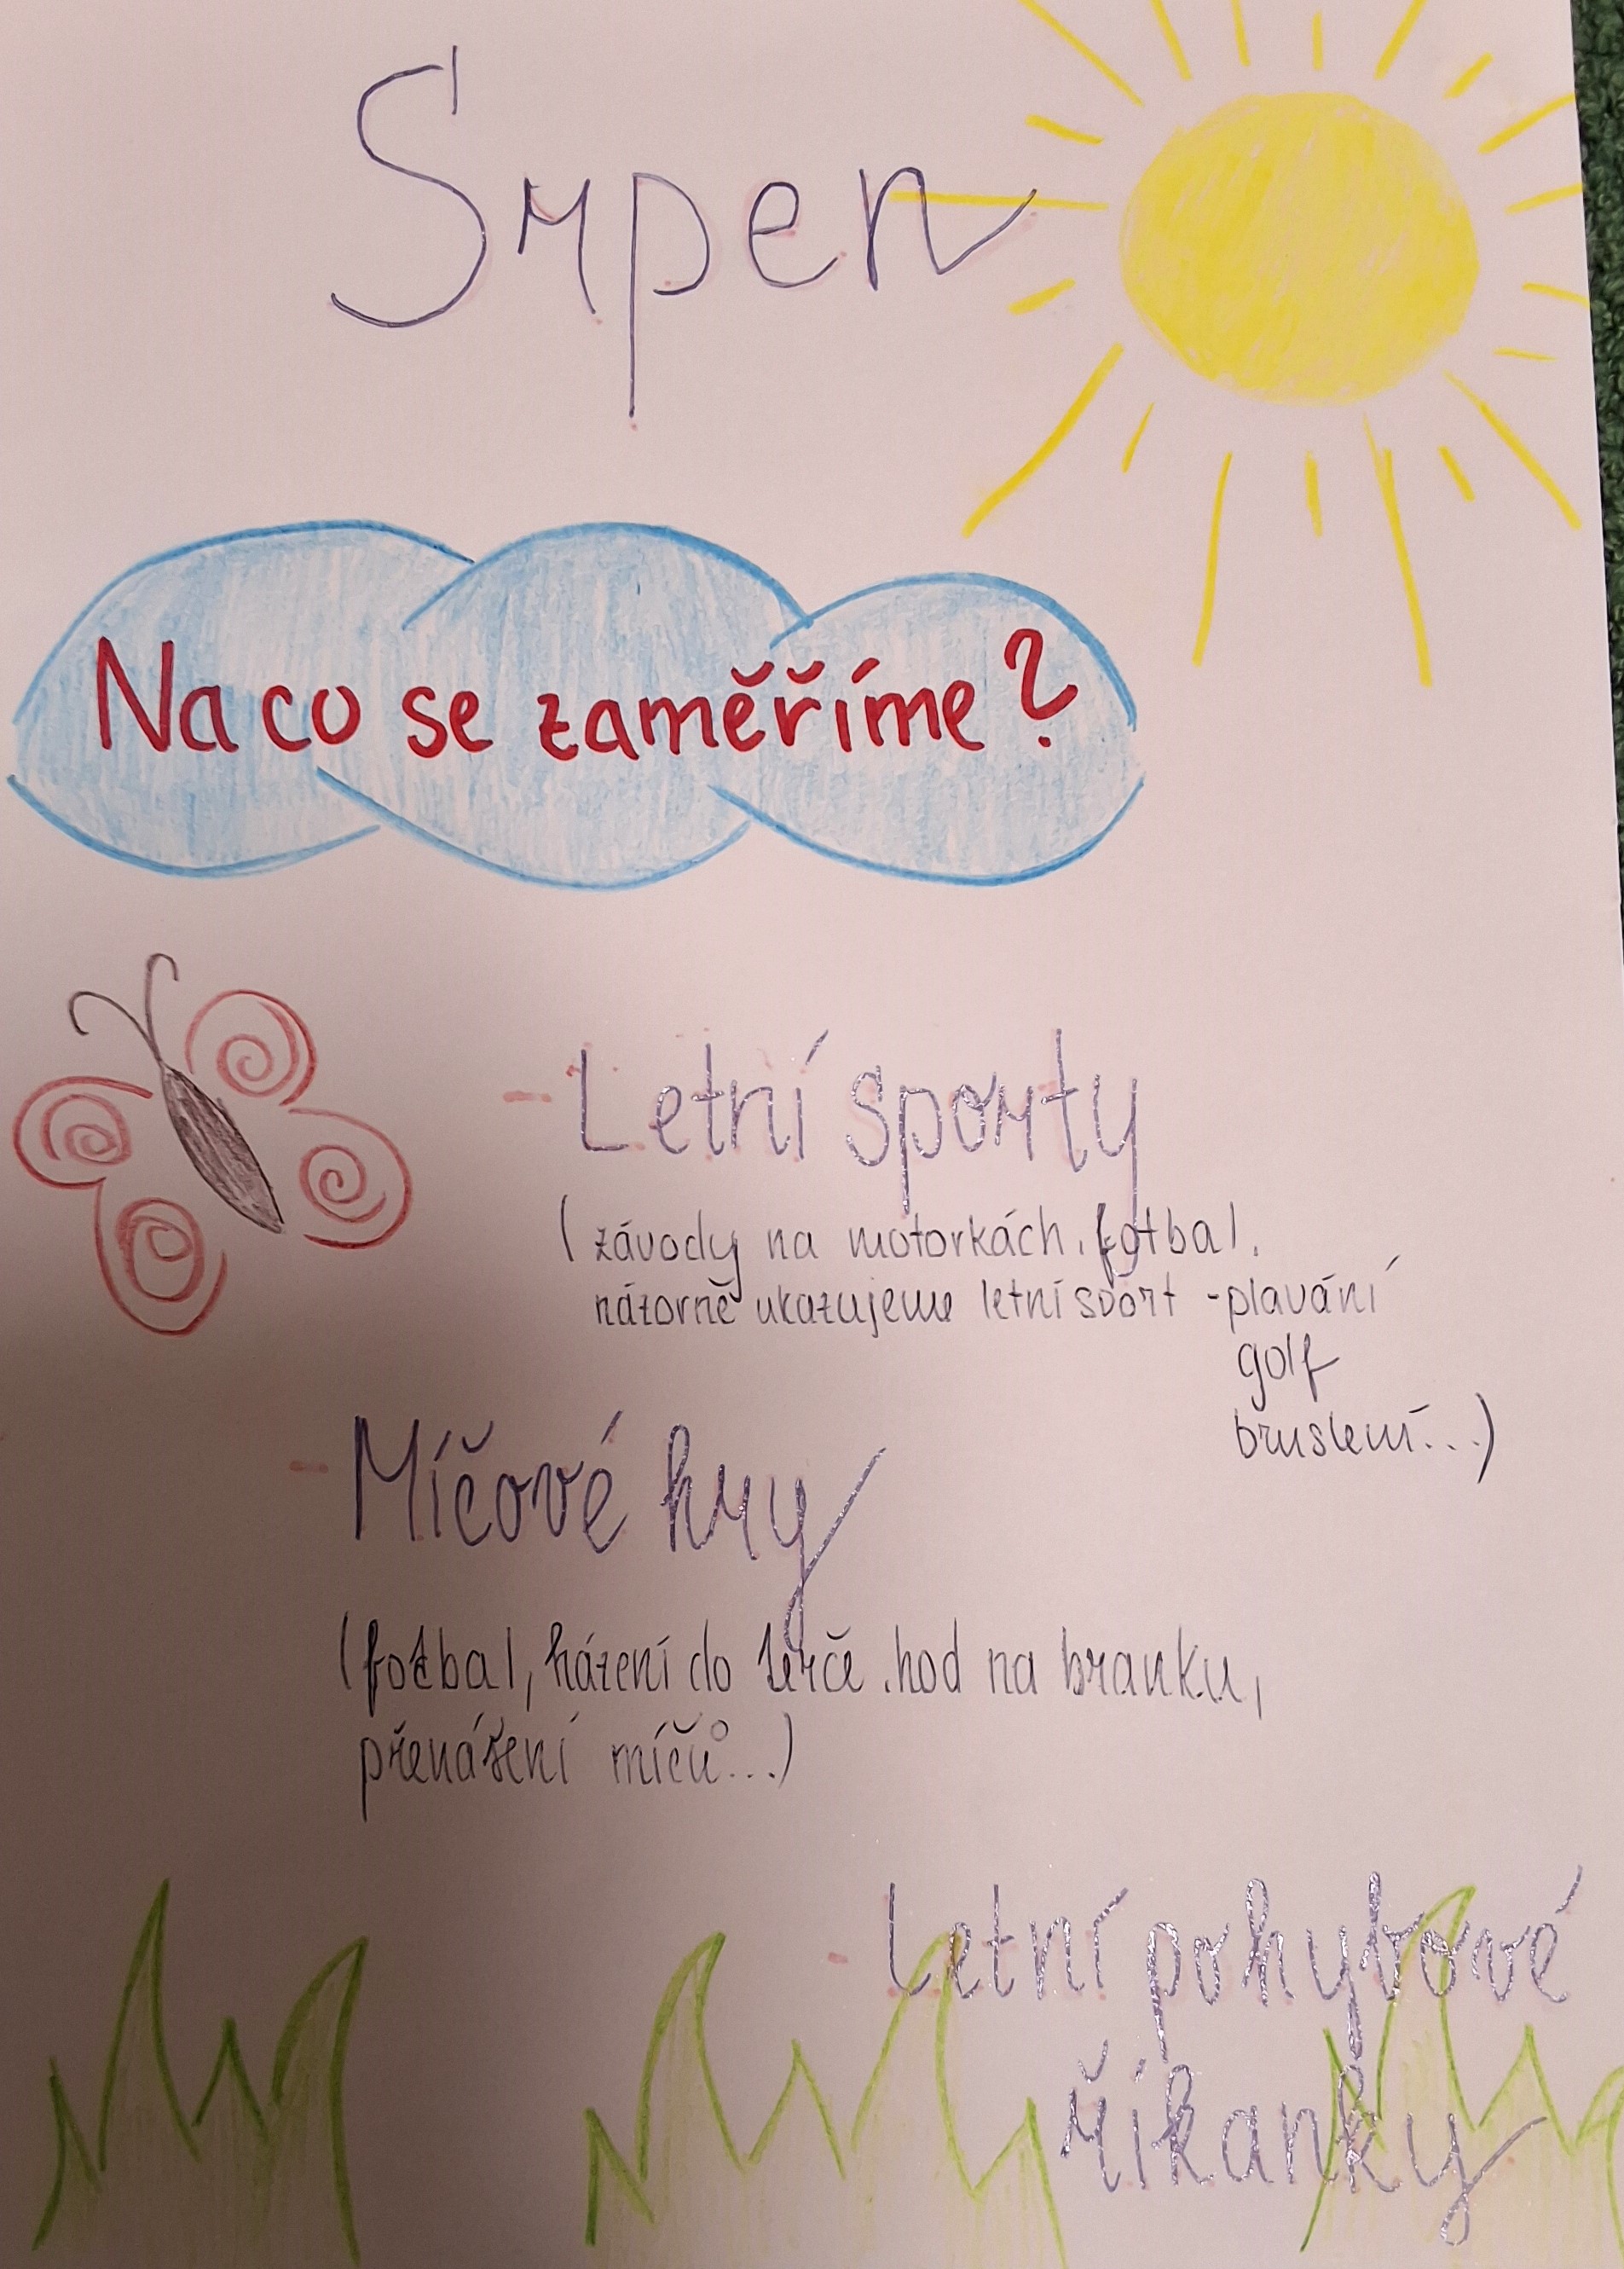 Srpen
Na co se zaměříme?
- Letní sporty
(závody na motorkách, fotbal,
názorně ukazujeme letní sport - plavání
golf
bruslení...)
- Míčové hry
(fotbal, házení do terče, hod na branku,
přenášení míčů...)
- Letní pohybové
říkanky